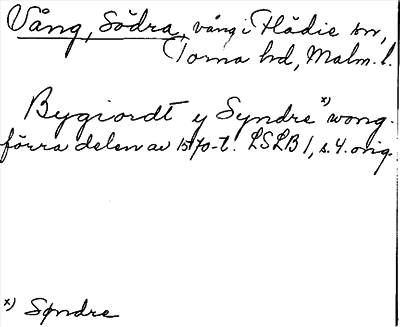 Vång, Södra, vång i Flädie sn,
Torna hd, Malm. l.
Bygiordt y Syndre x) wong.
förra delen av 1570-t. LSLB 1, s. 4. orig.
x) Syndre